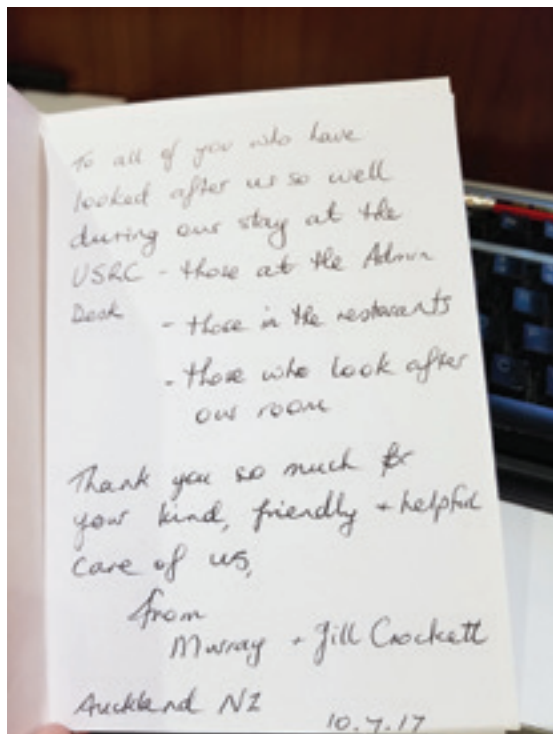 To all of you who have
looked after us so well
during our stay at the
USRC - those at the Admin
Desk - those in the restaurants
- those who look after
our room
Thank you so much for
your kind, friendly + helpful
care of us,
from
Murray + Jill Crockett
Auckland NZ
10.7.17